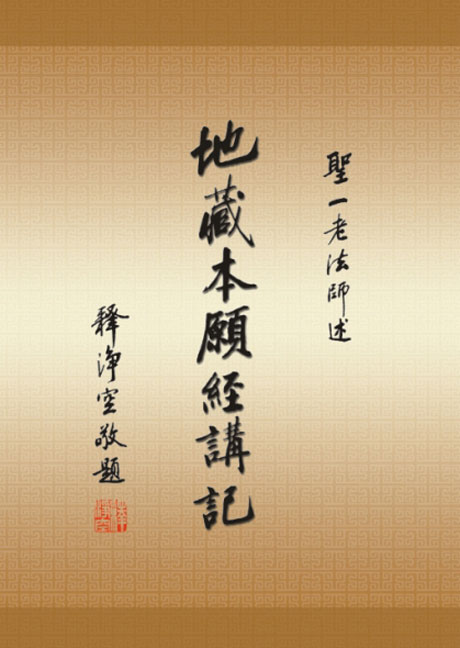 聖一老法師述
地藏本願經講記
釋淨空敬題